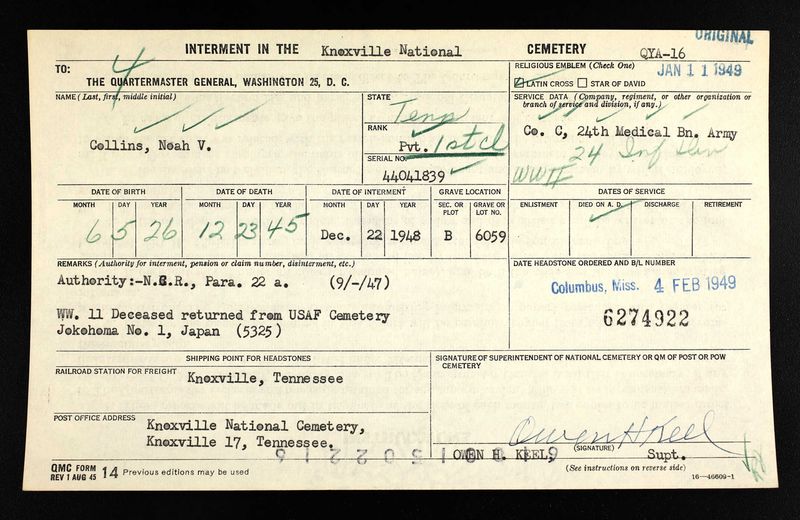 ORIGINAL
INTERMENT IN THE Knoxville National CEMETERY QYA-16
TO:
4
THE QUARTERMASTER GENERAL, WASHINGTON 25, D. C.
RELIGIOUS EMBLEM (Check One) JAN 11 1949
LATIN CROSS STAR OF DAVID
NAME (Last, first, middle initial)
Collins, Noah V.
STATE
Tenn
RANK
Pvt. 1st cl
SERIAL NO.
44041839
SERVICE DATA (Company, regiment, or other organization or
branch of service and division, if any.)
Co. C, 24th Medical Bn. Army
24 Inf Div
WWII
DATE OF BIRTH DATE OF DEATH DATE OF INTERMENT GRAVE LOCATION DATES OF SERVICE
MONTH DAY YEAR MONTH DAY YEAR MONTH DAY YEAR SEC. OR PLOT GRAVE OR LOT NO. ENLISTMENT DIED ON A. D. DISCHARGE RETIREMENT
6 5 26 12 23 45 Dec. 22 1948 B 6059
REMARKS (Authority for interment, pension or claim number, disinterment, etc.)
Authority:-N.C.R., Para. 22 a. (9/-/47)
WW. 11 Deceased returned from USAF Cemetery
Jokohoma No. 1, Japan (5325)
DATE HEADSTONE ORDERED AND B/L NUMBER
Columbus, Miss. 4 FEB 1949
6274922
SHIPPING POINT FOR HEADSTONES
RAILROAD STATION FOR FREIGHT
Knoxville, Tennessee
POST OFFICE ADDRESS
Knoxville National Cemetery,
Knoxville 17, Tennessee.
SIGNATURE OF SUPERINTENDENT OF NATIONAL CEMETERY OR QM OF POST OR POW
CEMETERY
Owen H Keel
OWEN H. KEEL, (SIGNATURE) Supt.
(See instructions on reverse side)
QMC FORM
REV 1 AUG 45 14 Previous editions may be used
16—46609-1